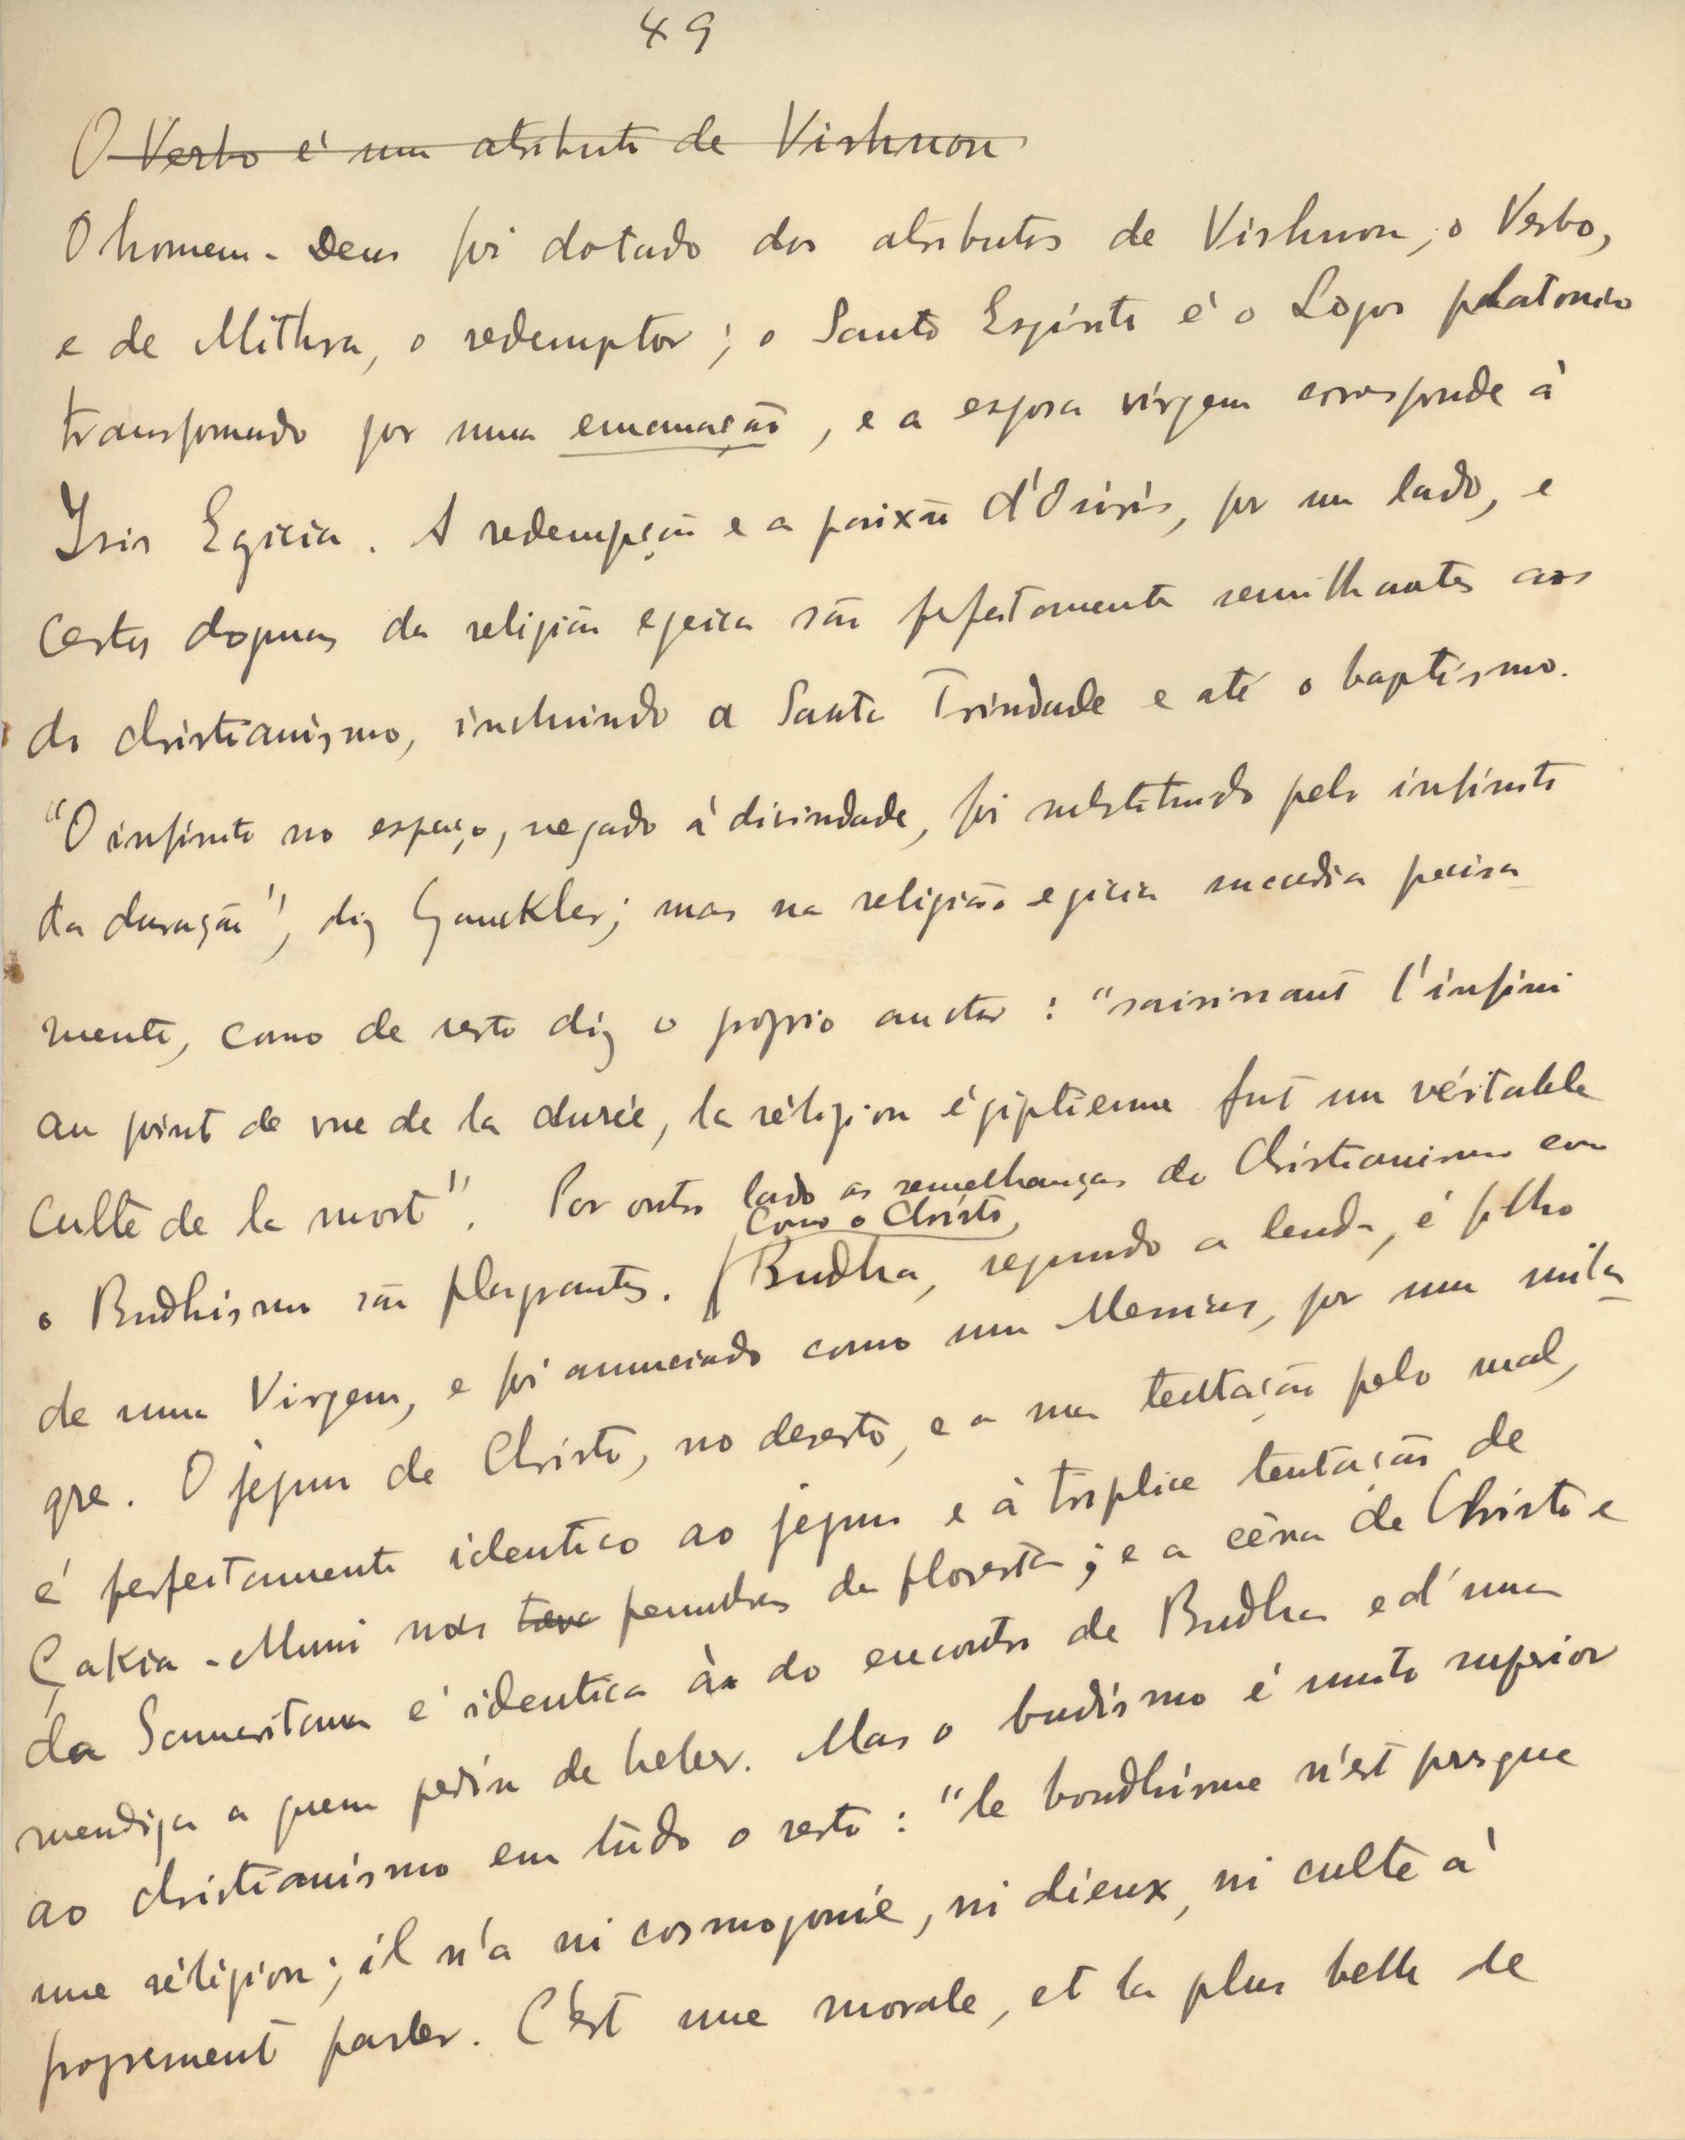 49
O Verbo é um atributo de Vishnou
O homem-Deus foi dotado dos atributos de Vishnou, o Verbo,
e de Mithra, o redemptor; o Santo Espirito é o Logos platonico
transformado por uma emanação, e a esposa virgem corresponde à
Isis Egicia. A redempção e a paixão d'Osiris, por um lado, e
certos dogmas da religião egicia são perfeitamente semilhantes aos
do christianismo, incluindo a Santa Trindade e até o baptismo.
"O infinito no espaço, negado à divindade, foi substituido pelo infinito
da duração", diz Gauckler; mas na religião egicia sucedia precisa-
mente, como de resto diz o proprio auctor: "saisissant l'infini
au point de vue de la durée, la réligion égiptienne fut un véritable
culte de la mort". Por outro lado as semelhanças do Christianismo com
Como o Christo,
o Budhismo são flagrantes. Budha, segundo a lenda, é filho
de uma Virgem, e foi anunciado como um Messias, por um mila-
gre. O jejum de Christo, no deserto, e a sua tentação pelo mal,
é perfeitamente identico ao jejum e à triplice tentação de
Çakia-Muni nas tava penumbras da floresta; e a cêna de Christo e
da Samaritana é identica à do encontro de Budha e d'uma
mendiga a quem pediu de beber. Mas o budismo é muito superior
ao christianismo em tudo o resto: "le boudhisme n'est presque
une réligion; il n'a ni cosmogonie, ni dieux, ni culte à
proprement parler. C'est une morale, et la plus belle de